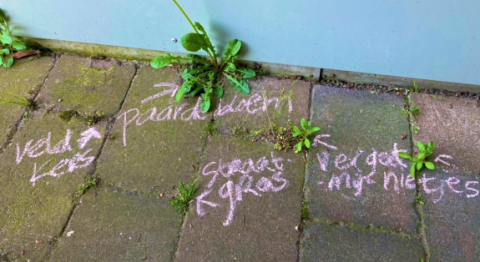 paardebloem
veld
kers
straat
gras
vergeet
mijnietjes